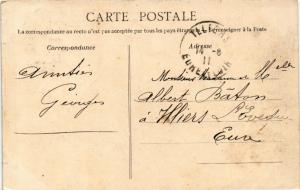 CARTE POSTALE
La correspondance au recto n'est pas acceptée par tous les pays étrangers. (Se renseigner à la Poste)
Correspondance
Adresse
14 -8
11
EURE
Amitiés
Georges
Monsieur et
Albert Bâton
à Illiers L'Evêque
Eure